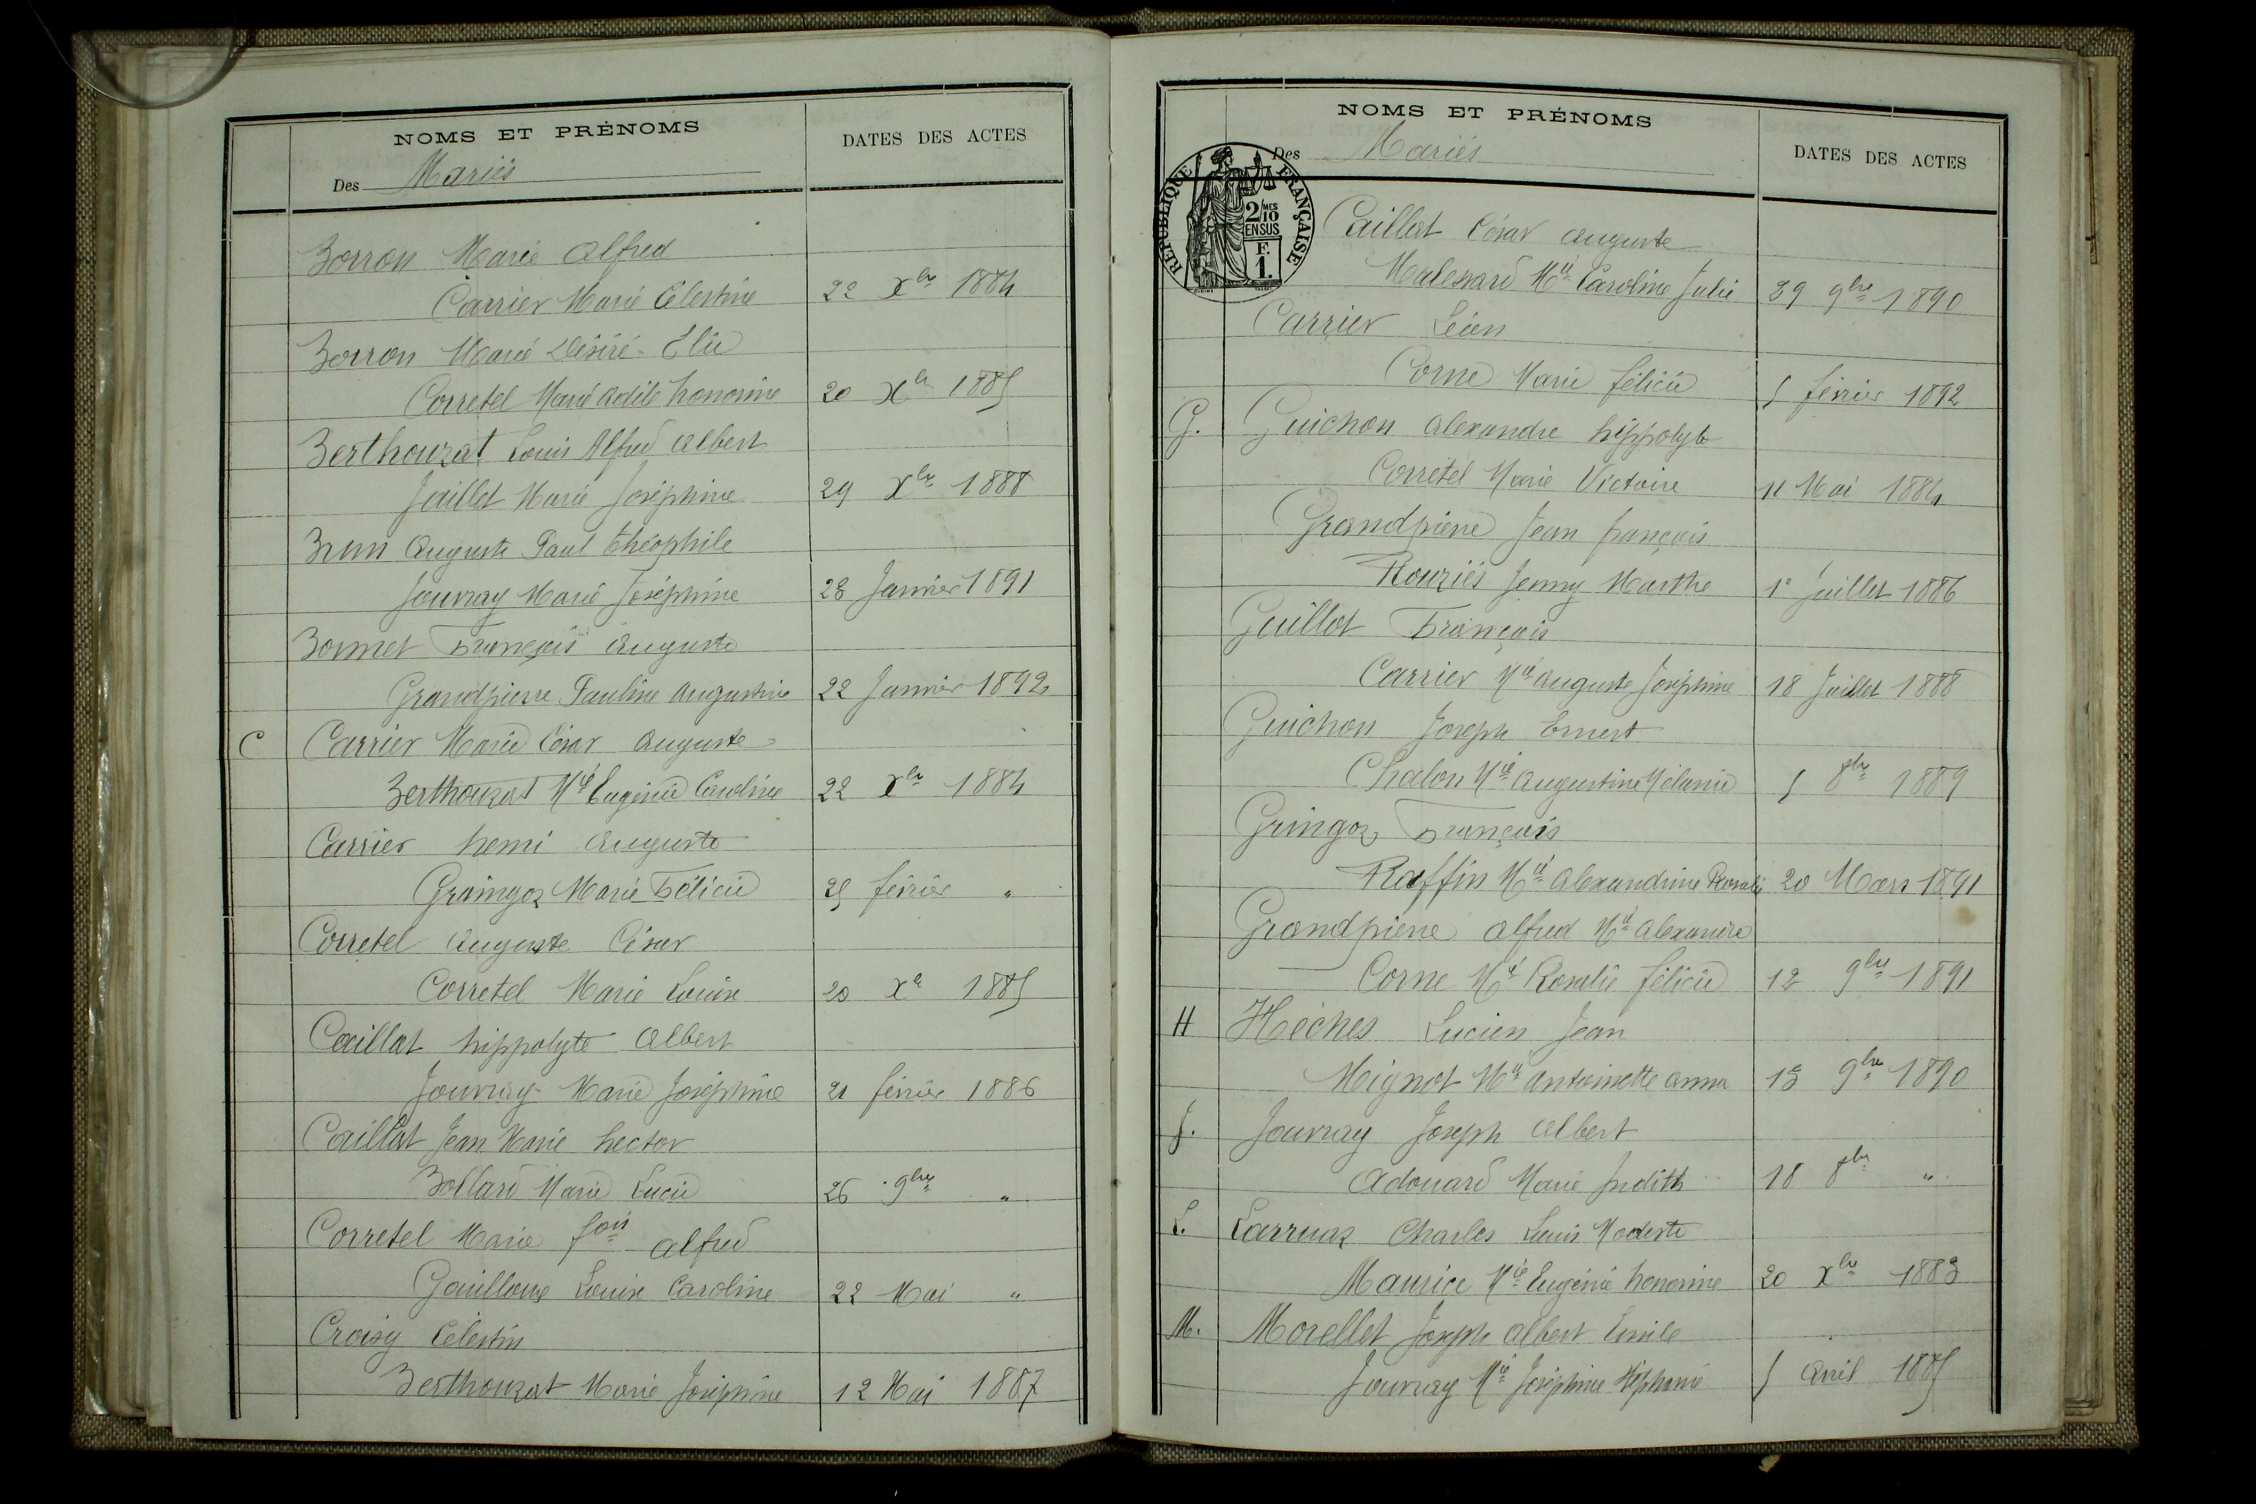 NOMS ET PRÉNOMS
DATES DES ACTES
Des Mariés
Borron Marie Alfred
Carrier Marie Célestine 22 Xbre 1884
Borron Marie Désiré Elie
Corretel Marie Adèle honorine 20 Xbre 1885
Berthouzat Louis Alfred Albert
Jaillet Marie Joséphine 29 Xbre 1888
Brun Auguste Paul théophile
Jouvray Marie Joséphine 28 Janvier 1891
Bonnet François Auguste
Grandpierre Pauline Augustine 22 Janvier 1892
C Carrier Marie César Auguste
Berthouzat Mie Eugénie Caroline 22 Xbre 1884
Carrier henri Auguste
Graingoz Marie Félicie 25 février "
Corretel Auguste César
Corretel Marie Louise 20 Xe 1885
Caillat hippolyte Albert
Jouvray Marie Joséphine 21 février 1886
Caillat Jean Marie hector
Bollard Marie Lucie 26 9bre "
Corretel Marie fois Alfred
Louise Caroline 22 Mai "
Croisy Célestin
Berthouzat Marie Joséphine 12 Mai 1887
NOMS ET PRÉNOMS
DATES DES ACTES
Des Mariés
RÉPUBLIQUE FRANÇAISE
2/10 MES
EN SUS
F.
1.
Caillat César Auguste
Malessard Mie Caroline Julie 9bre 1890
Carrier Léon
Corne Marie félicie 5 février 1892
G. Guichon Alexandre hippolyte
Corretel Marie Victoire 11 Mai 1884
Grandpierre Jean françois
Rouziés Jenny Marthe 1er Juillet 1886
Guillot François
Carrier Mie Auguste Joséphine 18 Juillet 1888
Guichon Joseph Ernest
Chalon Mie Augustine Mélanie 5 8bre 1889
Gringoz François
Raffin Mie Alexandrine Rosalie 20 Mars 1891
Grandpierre Alfred Mie Alexandre
Corne Mie Rosalie félicie 12 9bre 1891
H Hèches Lucien Jean
Mignot Mie Antoinette Anna 15 9bre 1890
J. Jouvray Joseph Albert
Adouard Marie Judith 18 8bre "
L. Larruaz Charles Louis Modeste
Maurice Mie Eugénie honorine 20 Xbre 1883
M. Morellet Joseph Albert Emile
Jouvray Mie Joséphine Stéphanie 5 Avril 1885